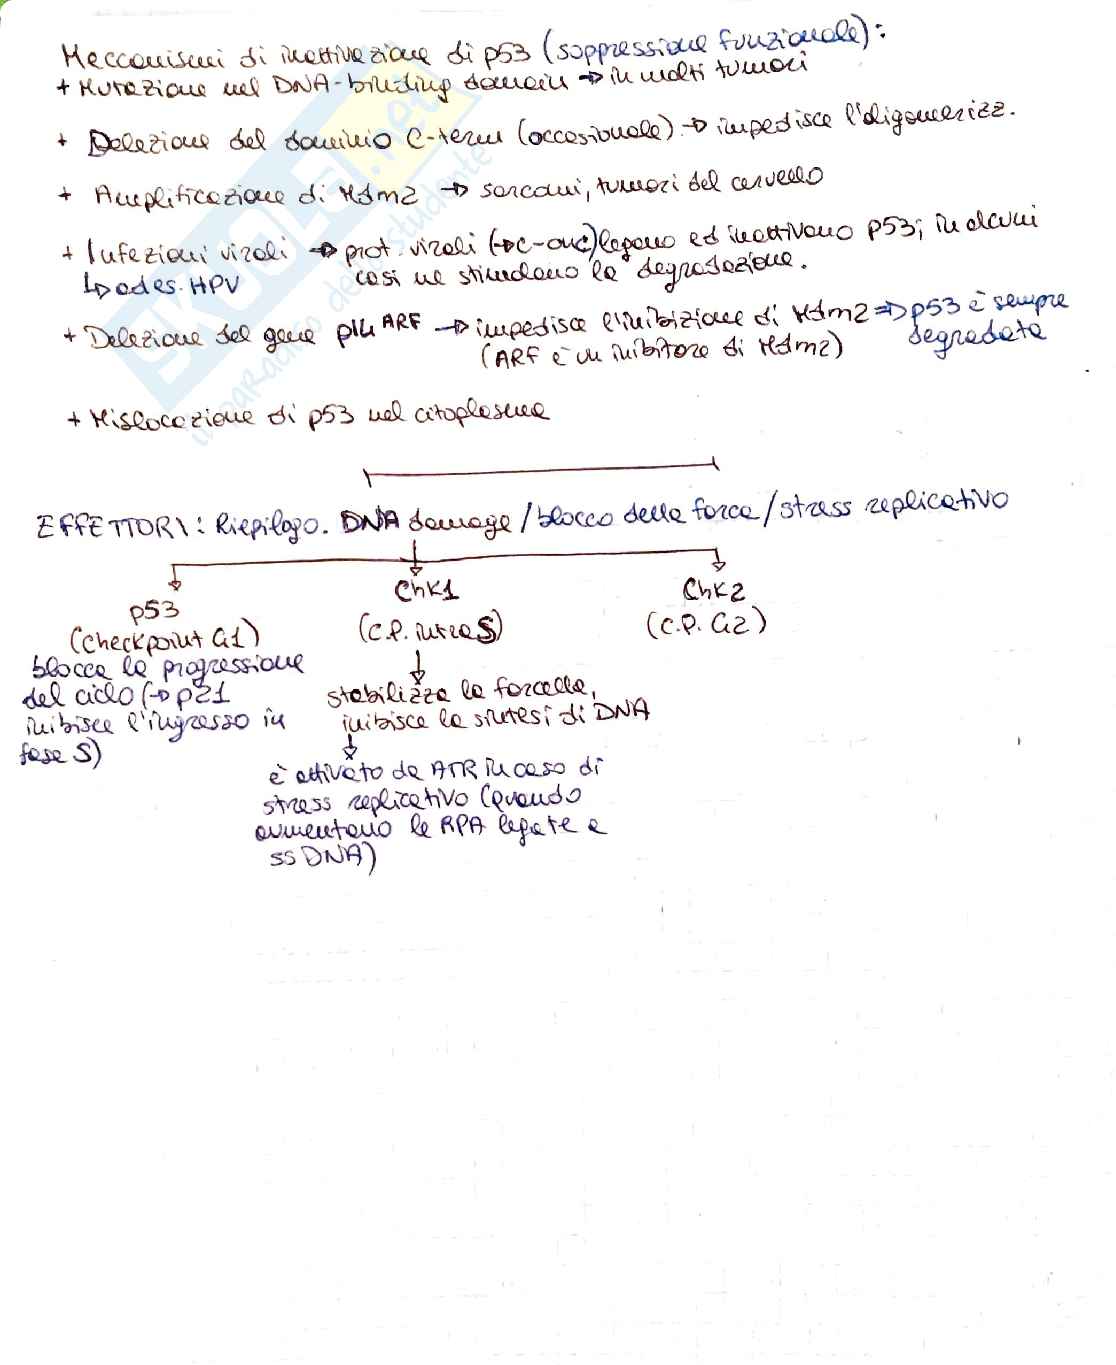 Meccanismi di inattivazione di p53 (soppressione funzionale):
+ Mutazione nel DNA-binding domain → in molti tumori
+ Delezione del dominio C-term (occasionale) → impedisce l'oligomerizz.
+ Amplificazione di Hdm2 → sarcomi, tumori del cervello
+ Infezioni virali → prot. virali (→ c-onc) legano ed inattivano p53; in alcuni
↳ ad es. HPV casi ne stimolano la degradazione.
+ Delezione del gene p14 ARF → impedisce l'inibizione di Hdm2 ⇒ p53 è sempre
(ARF è un inibitore di Hdm2) degradata
+ Mislocazione di p53 nel citoplasma
EFFETTORI: Riepilogo. DNA damage / blocco della forca / stress replicativo
p53 Chk1 Chk2
(checkpoint G1) (C.P. intra S) (C.P. G2)
blocca la progressione
del ciclo (→ p21
inibisce l'ingresso in
fase S)
stabilizza la forcella,
inibisce la sintesi di DNA
è attivato da ATR in caso di
stress replicativo (quando
aumentano le RPA legate a
ss DNA)
SKUOLA.net
il paradiso dello studente